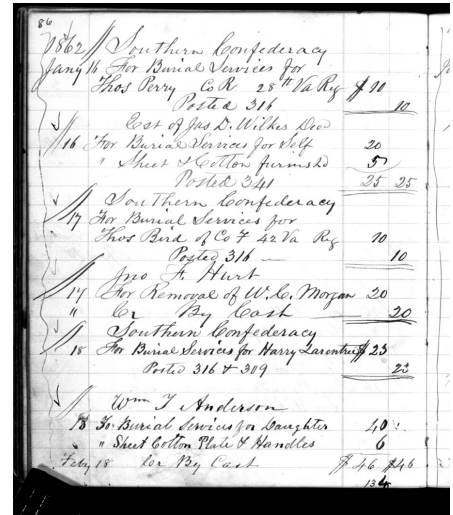 86
1862 // Southern Confederacy
Jany 16 For Burial Services for
Thos Perry Co R 28th Va Reg $10
Posted 316 10
Est of Jas D. Wilkes Decd
16 For Burial Services for Self 20
" Sheet & Cotton furnishd 5
Posted 341 25 25
Southern Confederacy
17 For Burial Services for
Thos Bird of Co F 42 Va Reg 10
Posted 316 — 10
Jno F. Hurt
17 For Removal of W. C. Morgan 20
" Cr By Cash 20
Southern Confederacy
18 For Burial Services for Harry $23
Posted 316 & 309 23
Wm T Anderson
18 To Burial Services for Daughter 40
" Sheet Cotton Plate & Handles 6
Feby 18 Cr By Cash $46 $46